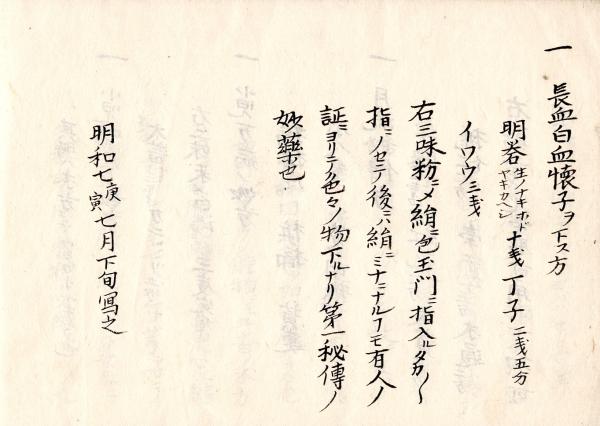 一 長血白血懐子ヲ下ス方
明礬 生ノナキホド ヤキカヘシ 十戔 丁子 二戔五分
イワウ 三戔
右三味粉ニメ絹ニ包玉門ニ指入ルタカ〱
指ノセテ後ハ絹ニミナニナルヿモ有人ノ
証ニヨリテ色々ノ物下ルナリ第一秘傳ノ
妙藥也
明和七庚寅七月下旬写之